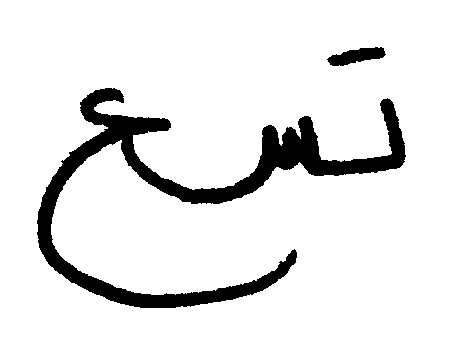 تسع